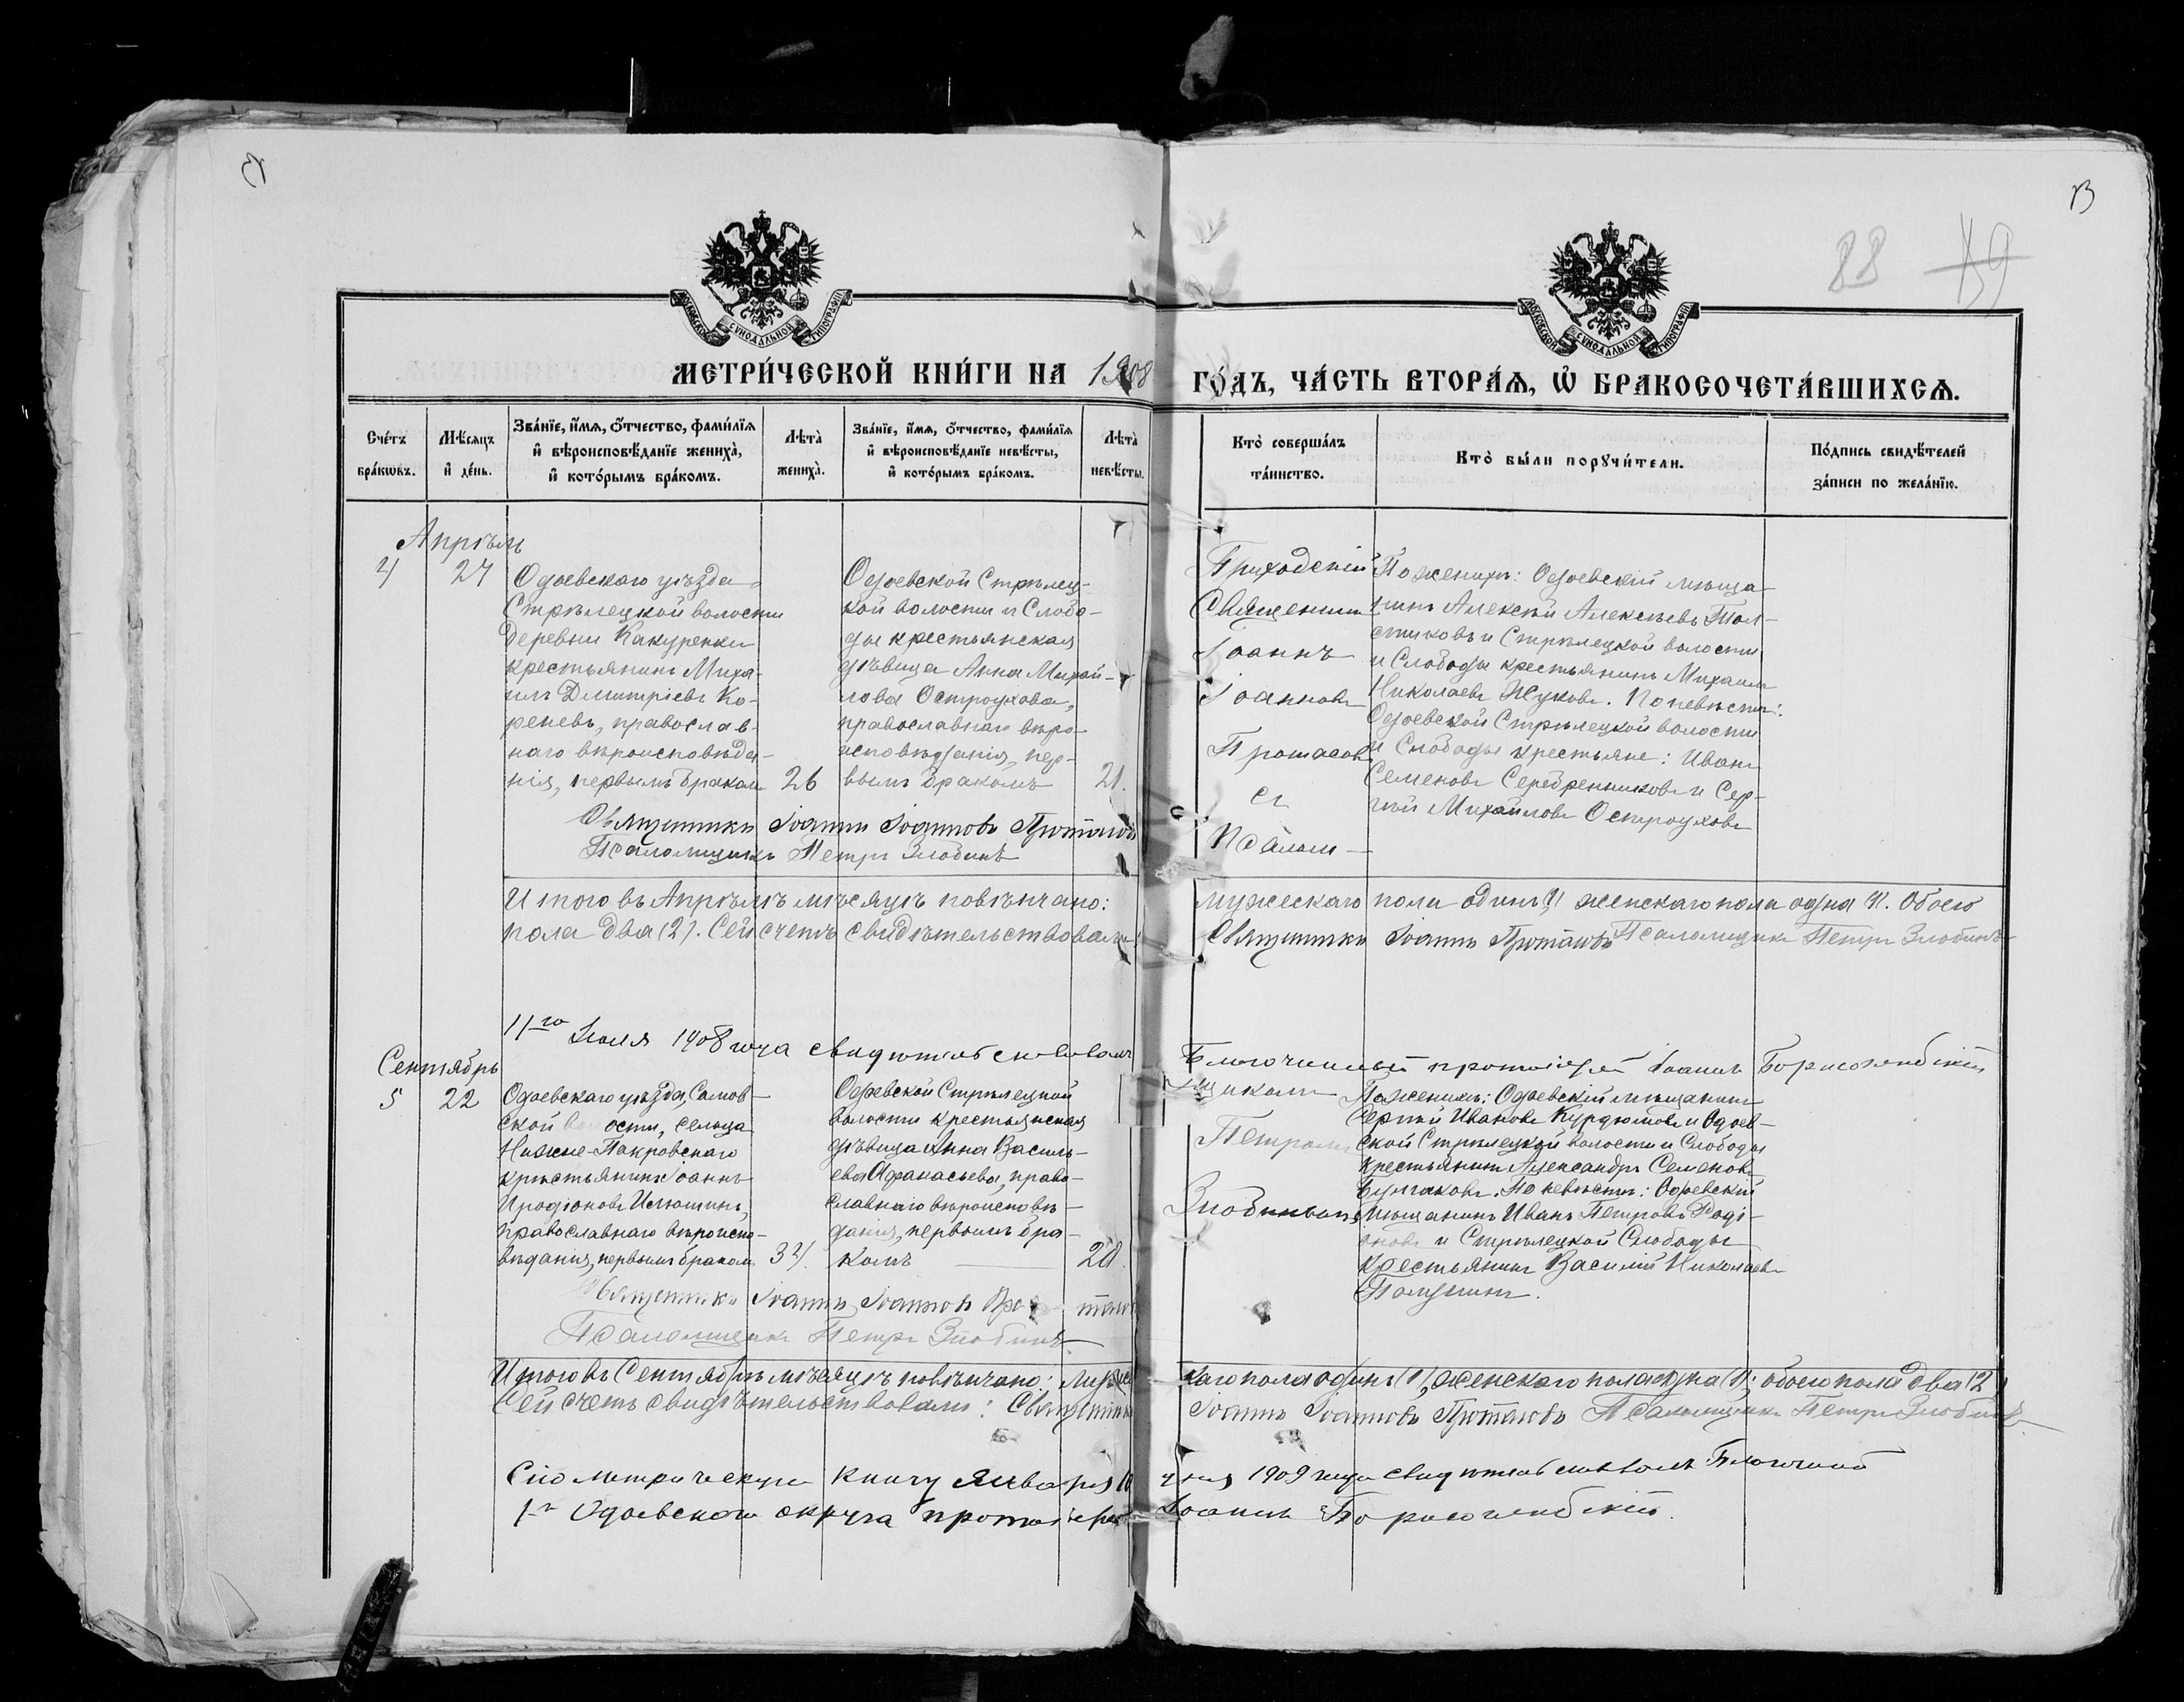 13
13
88 159
МОСКОВСКОЙ СѴНОДАЛЬНОЙ ТИПОГРАФІИ
МОСКОВСКОЙ СѴНОДАЛЬНОЙ ТИПОГРАФІИ
МЕТРИ́ЧЕСКОЙ КНИ́ГИ НА 1908 ГО́ДЪ, ЧА́СТЬ ВТОРА́Ѧ, Ѡ҆ БРАКОСОЧЕТА́ВШИХСѦ.
Сче́тъ бра́кѡвъ.
Мѣ́сѧцъ и҆ де́нь.
Зва́нїе, и҆́мѧ, ѻ҆́тчество, фами́лїѧ
и҆ вѣроисповѣ́данїе жениха̀,
и҆ кото́рымъ бра́комъ.
Лѣта̀ жениха̀.
Зва́нїе, и҆́мѧ, ѻ҆́тчество, фами́лїѧ
и҆ вѣроисповѣ́данїе невѣ́сты,
и҆ кото́рымъ бра́комъ.
Лѣта̀ невѣ́сты.
Кто̀ соверша́лъ та́инство.
Кто̀ бы́ли порꙋчи́тели.
По́дпись свидѣ́телей за́писи по жела́нїю.
Апрѣль
4 27
Одоевскаго уѣзда
Стрѣлецкой волости
деревни Какуренки
крестьянинъ Миха-
илъ Димитріевъ Ко-
реневъ, православ-
наго вѣроисповѣда-
нія, первымъ бракомъ
26
Одоевской Стрѣлец-
кой волости и Слобо-
ды крестьянская
дѣвица Анна Михай-
лова Остроухова,
православнаго вѣро-
исповѣданія, пер-
вымъ бракомъ
21.
Приходскій
Священникъ
Іоаннъ
Іоанновъ
Протасовъ
съ
Псалом-
По женихѣ: Одоевскій мѣща-
нинъ Алексѣй Алексѣевъ Тол-
стиковъ и Стрѣлецкой волости
и Слободы крестьянинъ Михаилъ
Николаевъ Жуковъ. По невѣстѣ:
Одоевской Стрѣлецкой волости
и Слободы крестьяне: Иванъ
Семеновъ Серебренниковъ и Сер-
гѣй Михайловъ Остроуховъ
Священникъ Іоаннъ Іоанновъ Протасовъ
Псаломщикъ Петръ Злобинъ
Итого въ Апрѣлѣ мѣсяцѣ повѣнчано: мужескаго пола одинъ (1) женскаго пола одна (1). Обоего
пола два (2). Сей счетъ свидѣтельствовали: Священникъ Іоаннъ Протасовъ Псаломщикъ Петръ Злобинъ
11го Іюля 1908 года свидѣтельствовалъ Благочинный протоіерей Іоаннъ Борисоглебскій
Сентябрь
5 22
Одоевскаго уѣзда, Сомов-
ской волости, сельца
Нижне-Покровскаго
крестьянинъ Іоаннъ
Иродіоновъ Илюшинъ,
православнаго вѣроиспо-
вѣданія, первымъ бракомъ
Одоевской Стрѣлецкой
волости крестьянская
дѣвица Анна Василь-
ева Афанасьева, право-
славнаго вѣроисповѣ-
данія, первымъ бра-
комъ
28.
щикомъ
Петромъ
Злобинымъ
По женихѣ: Одоевскій мѣщанинъ
Сергѣй Ивановъ Курдюмовъ и Одоев-
ской Стрѣлецкой волости и Слободы
крестьянинъ Александръ Семеновъ
Булгаковъ. По невѣстѣ: Одоевскій
мѣщанинъ Иванъ Петровъ Роді-
оновъ и Стрѣлецкой Слободы
крестьянинъ Василій Николаевъ
Священникъ Іоаннъ Іоанновъ Протасовъ
Псаломщикъ Петръ Злобинъ
Итого въ Сентябрѣ мѣсяцѣ повѣнчано: мужескаго пола одинъ (1), женскаго пола одна (1); обоего пола два (2)
Сей счетъ свидѣтельствовали: Священникъ Іоаннъ Іоанновъ Протасовъ Псаломщикъ Петръ Злобинъ
Сію метрическую книгу Января 10 дня 1909 года свидѣтельствовалъ Благочинный
1го Одоевскаго округа протоіерей Іоаннъ Борисоглебскій.